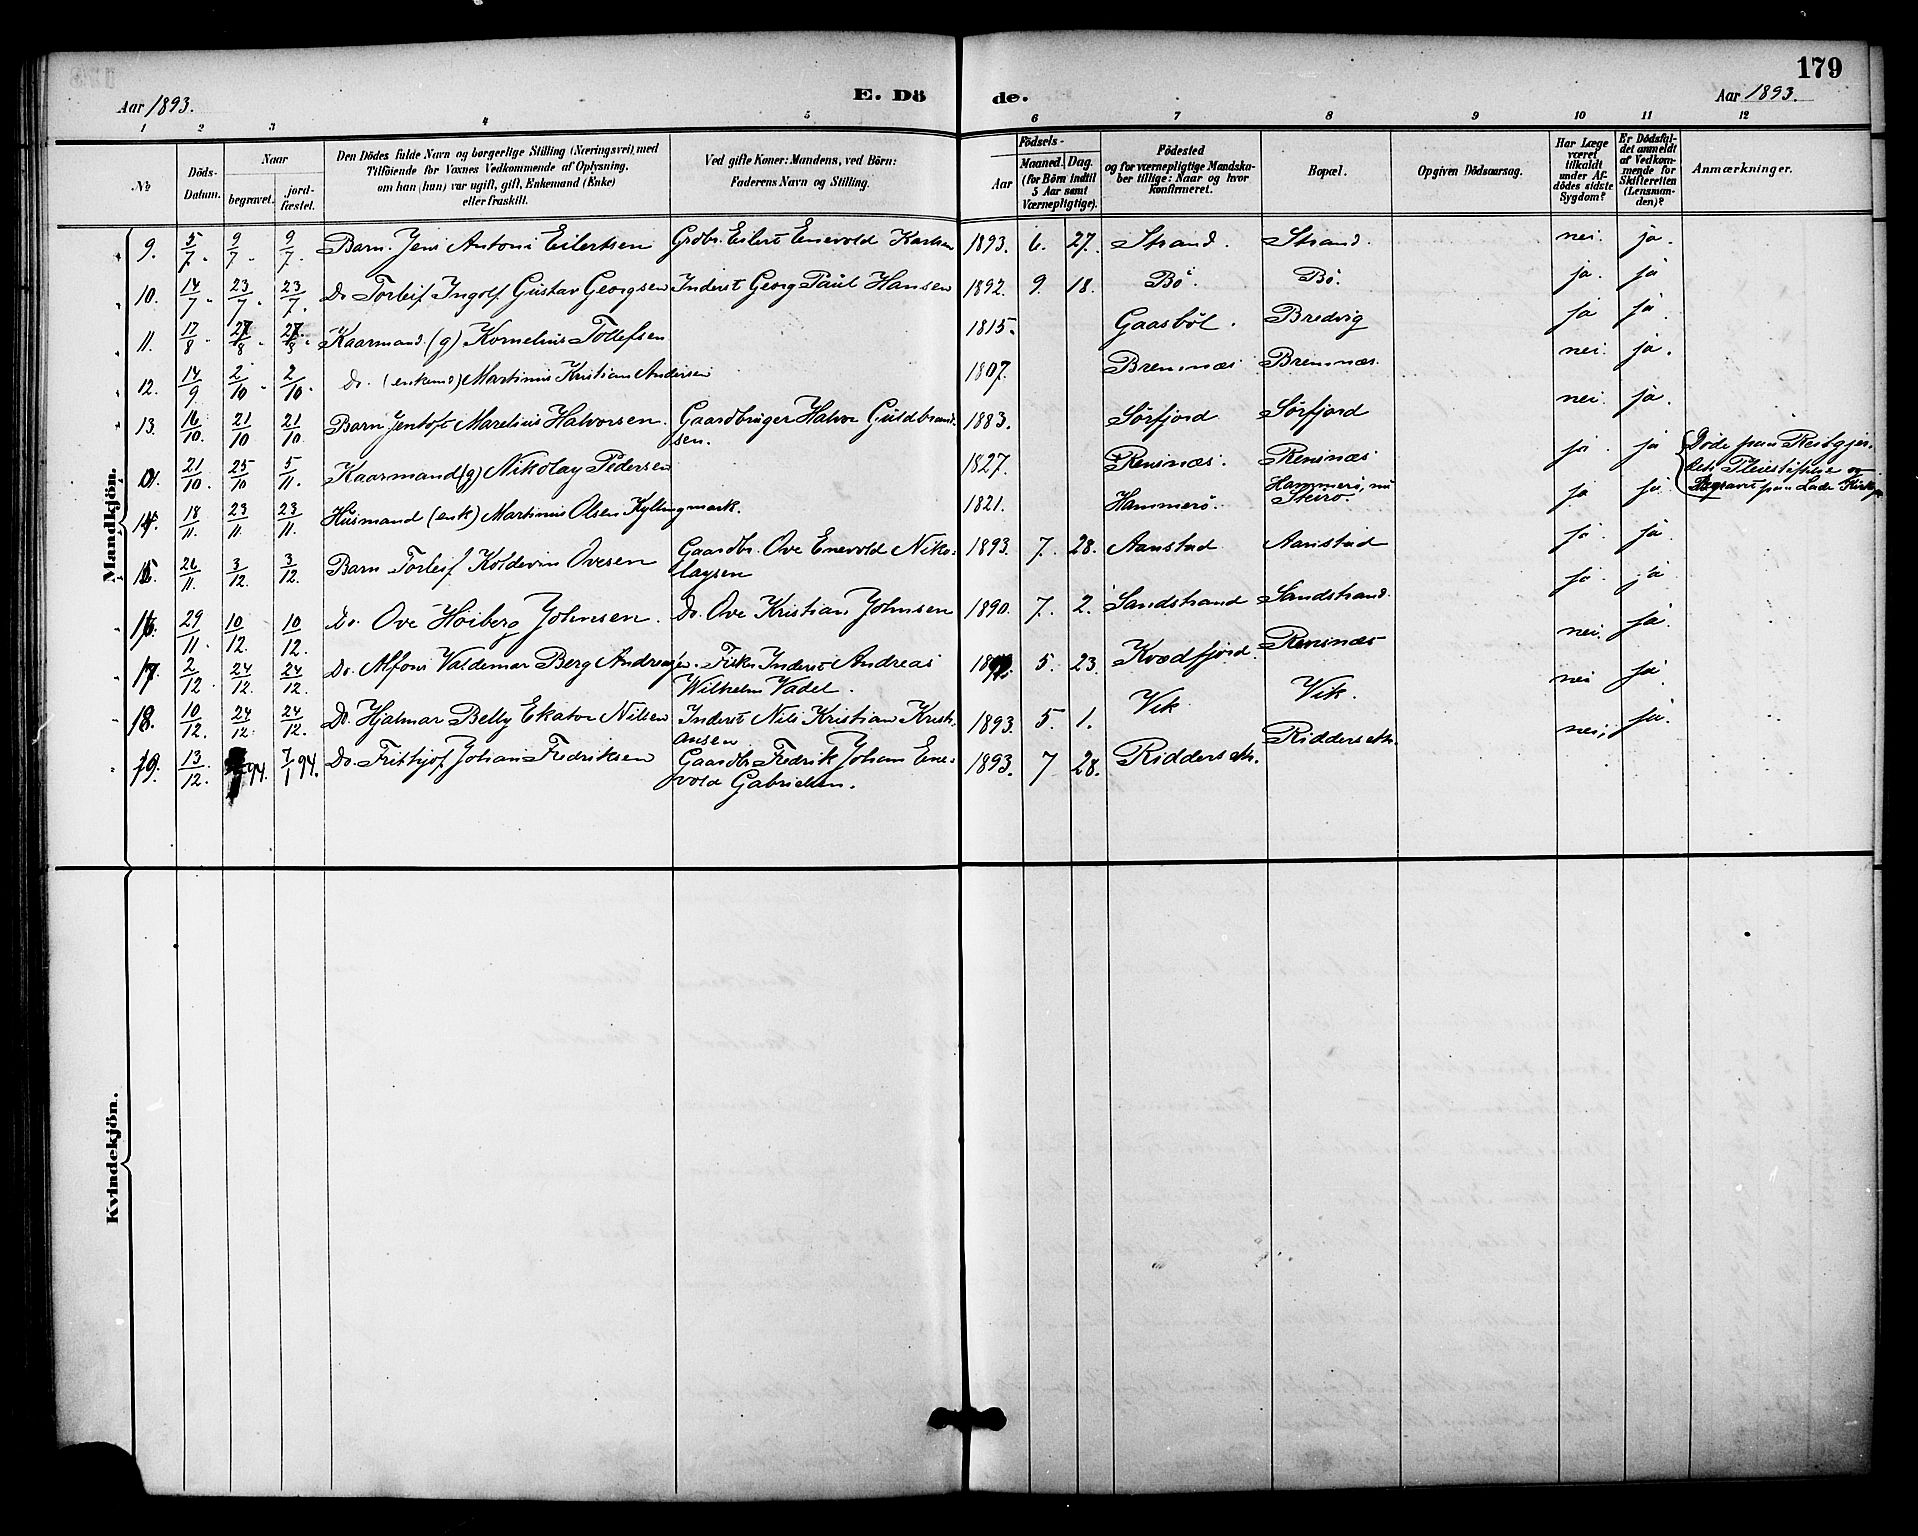 179
Aar 1893.
E. Dö de.
Aar 1893.
1 2 3 4 5 6 7 8 9 10 11 12
№
Döds-Datum.
Naar
begravet.
jord-fæstet.
Den Dödes fulde Navn og borgerlige Stilling (Næringsvei), med
Tilföiende for Voxnes Vedkommende af Oplysning.
om han (hun) var ugift, gift, Enkemand (Enke)
eller fraskilt.
Ved gifte Koner: Mandens, ved Börn:
Faderens Navn og Stilling.
Födsels-
Aar
Maaned. Dag.
(for Börn indtil
5 Aar samt
Værnepligtige).
Födested
og for værnepligtige Mandska-
ber tillige: Naar og hvor
Konfirmeret.
Bopæl.
Opgiven Dödsaarsag.
Har Læge
været
tilkaldt
under Af-
dödes sidste
Sygdom?
Er Dödsfal-
det anmeldt
af Vedkom-
mende for
Skifteretten
(Lensman-
den)?
Anmærkninger.
Mandkjön.
9. 5/7. 9/7. 9/7. Barn. Jens Antoni Eilertsen Grdbr. Eilert Enevold Karlsen 1893. 6. 27. Strand. Strand. nei. ja.
10. 14/7. 23/7. 23/7. Do Torleif Ingolf Gustav Georgsen Inderst Georg Paul Hansen 1892. 9. 18. Bö. Bö. ja. ja
11. 12/8. 27/8. 27/8. Kaarmand. (g) Kornelius Tollefsen 1815. Gaasböl. Bredvig ja ja.
12. 14/9 2/10. 2/10. Do. (enkemd) Martinus Kristian Andersen 1807. Bremnæs Bremnæs. nei. ja.
13. 16/10. 21/10 21/10. Barn Jentoft Marelius Halvorsen. Gaardbruger Halvor Guldbrand-
sen. 1883. Sörfjord Sörfjord nei. ja.
21/10. 25/10 5/11. Kaarmand (g) Nikolay Pedersen 1827. Rensnæs. Rensnæs ja. ja
Döde paa Reitgjer-
dets Pleiestiftelse og
Begravet paa Lade Kirkeg.
14. 18/11. 23/11. 23/11. Husmand (enk) Martinus Olsen Kyllingmark. 1821. Hammerö. Hammerö, nu
ja ja
15. 26/11. 3/12. 3/12. Barn Torleif Koldevin Ovesen Gaardbr. Ove Enevold Niko-
laysen 1893 7. 28. Aanstad Aanstad ja. ja.
16. 29/11. 10/12. 10/12. Do. Ove Höiberg Johnsen. Do. Ove Kristian Johnsen 1890. 7. 2. Sandstrand Sandstrand. ja. ja
17. 2/12. 24/12. 24/12. Do. Alfons Valdemar Berg Andreasen. Fisker Inderst Andreas
Wilhelm Vadel. 5. 23 Kvædfjord. Rensnæs nei. ja.
18. 10/12. 24/12. 24/12. Do. Hjalmar Belly Ekator Nilsen Inderst Nils Kristian Krist-
ansen 1893. 5. 1. Vik Vik. nei ja.
19. 13/12. 94. 7/1 94. Do. Frithjof Johan Fredriksen Gaardbr. Fredrik Johan Ene-
vold Gabrielsen. 1893. 7 28. Riddersetr. Riddersetr. nei, ja.
Kvindekjön.